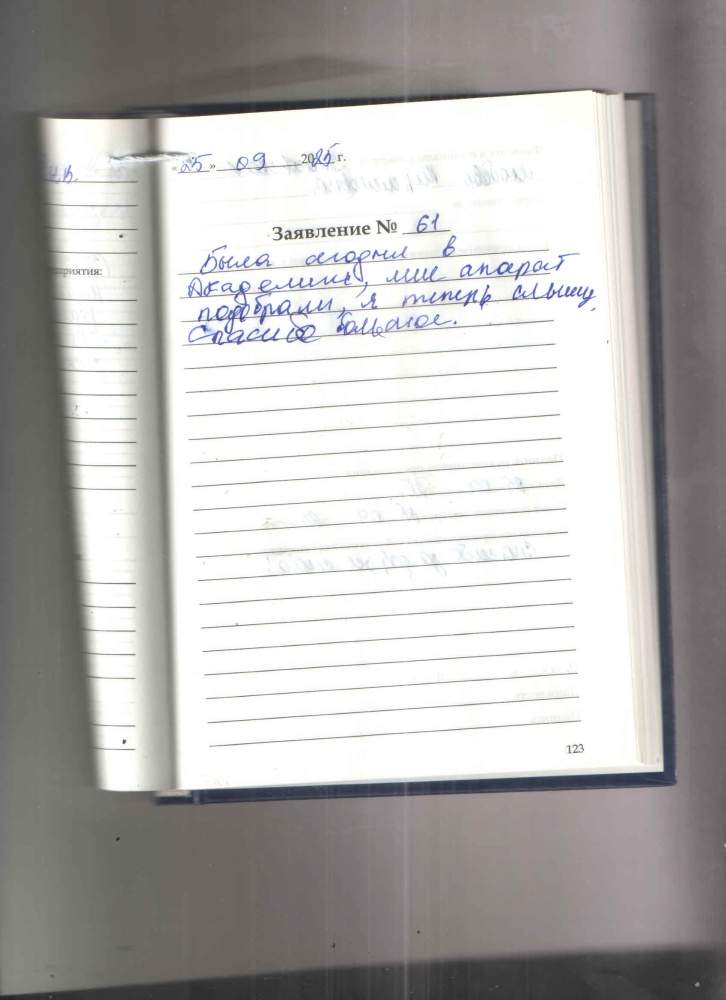 «25» 09 2025 г.
Заявление № 61
Была сегодня в
Академии, мне апарат
подобрали, я теперь слышу.
Спасибо большое.
123
н.в.
приятия: